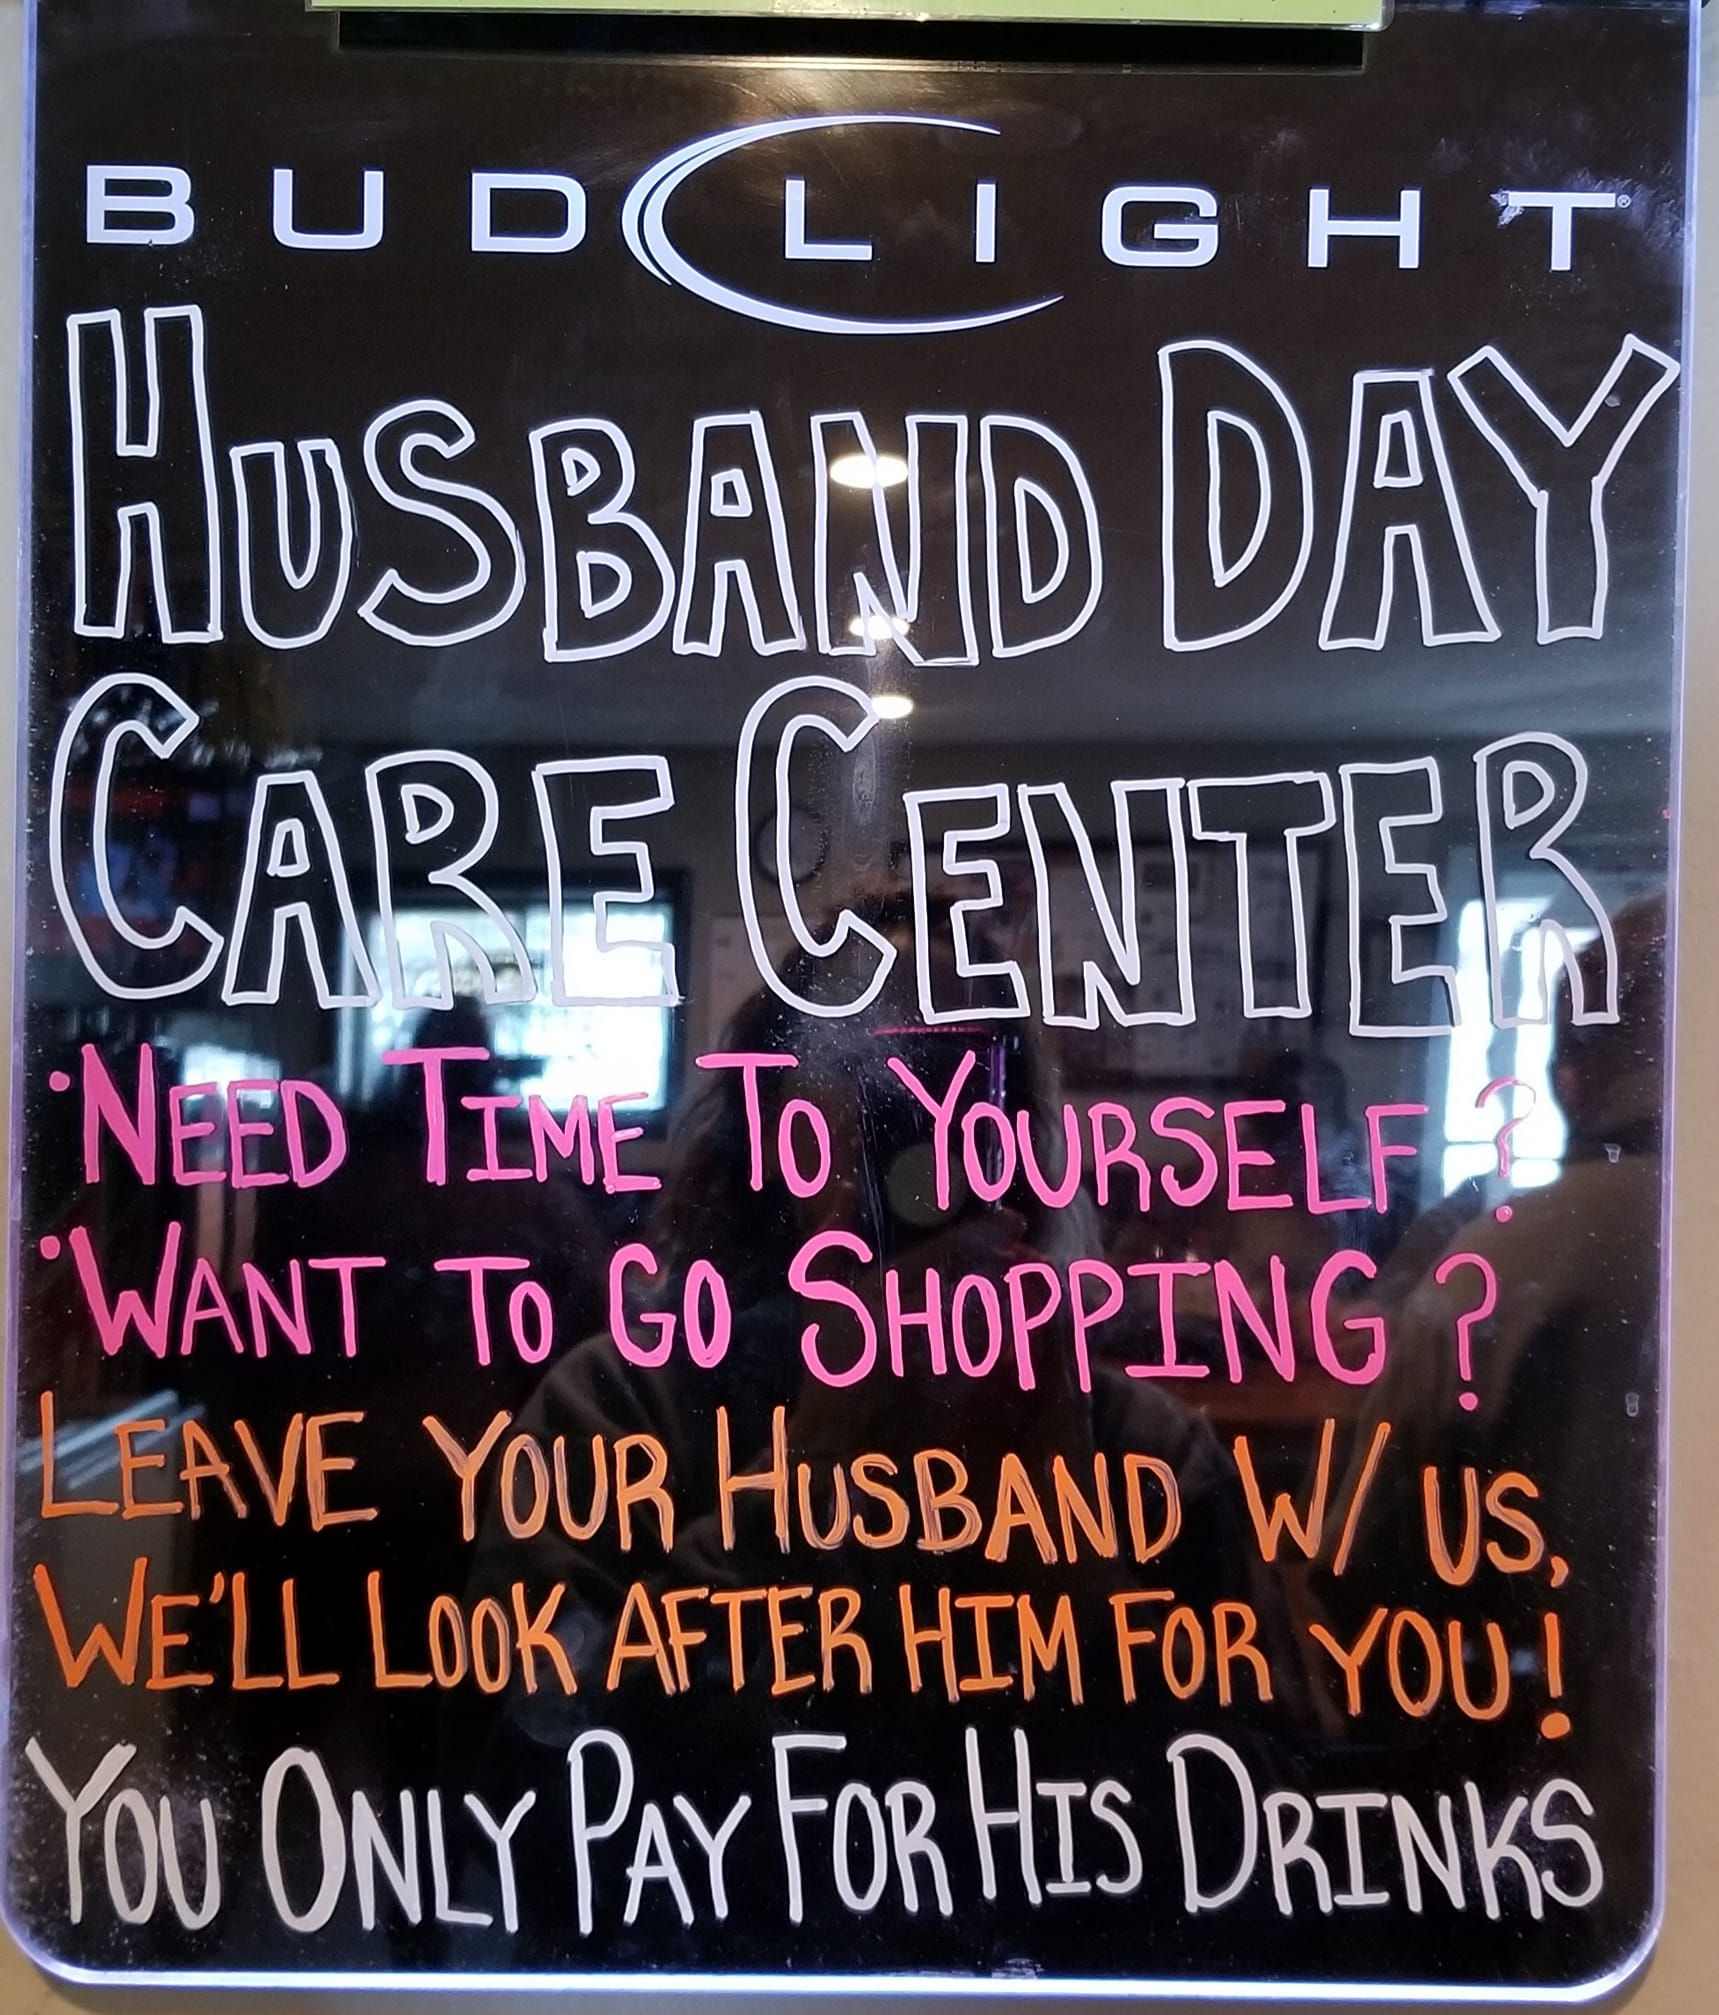 BUD LIGHT®
HUSBAND DAY
CARE CENTER
·NEED TIME TO YOURSELF?
·WANT TO GO SHOPPING?
LEAVE YOUR HUSBAND W/ US,
WE'LL LOOK AFTER HIM FOR YOU!
YOU ONLY PAY FOR HIS DRINKS